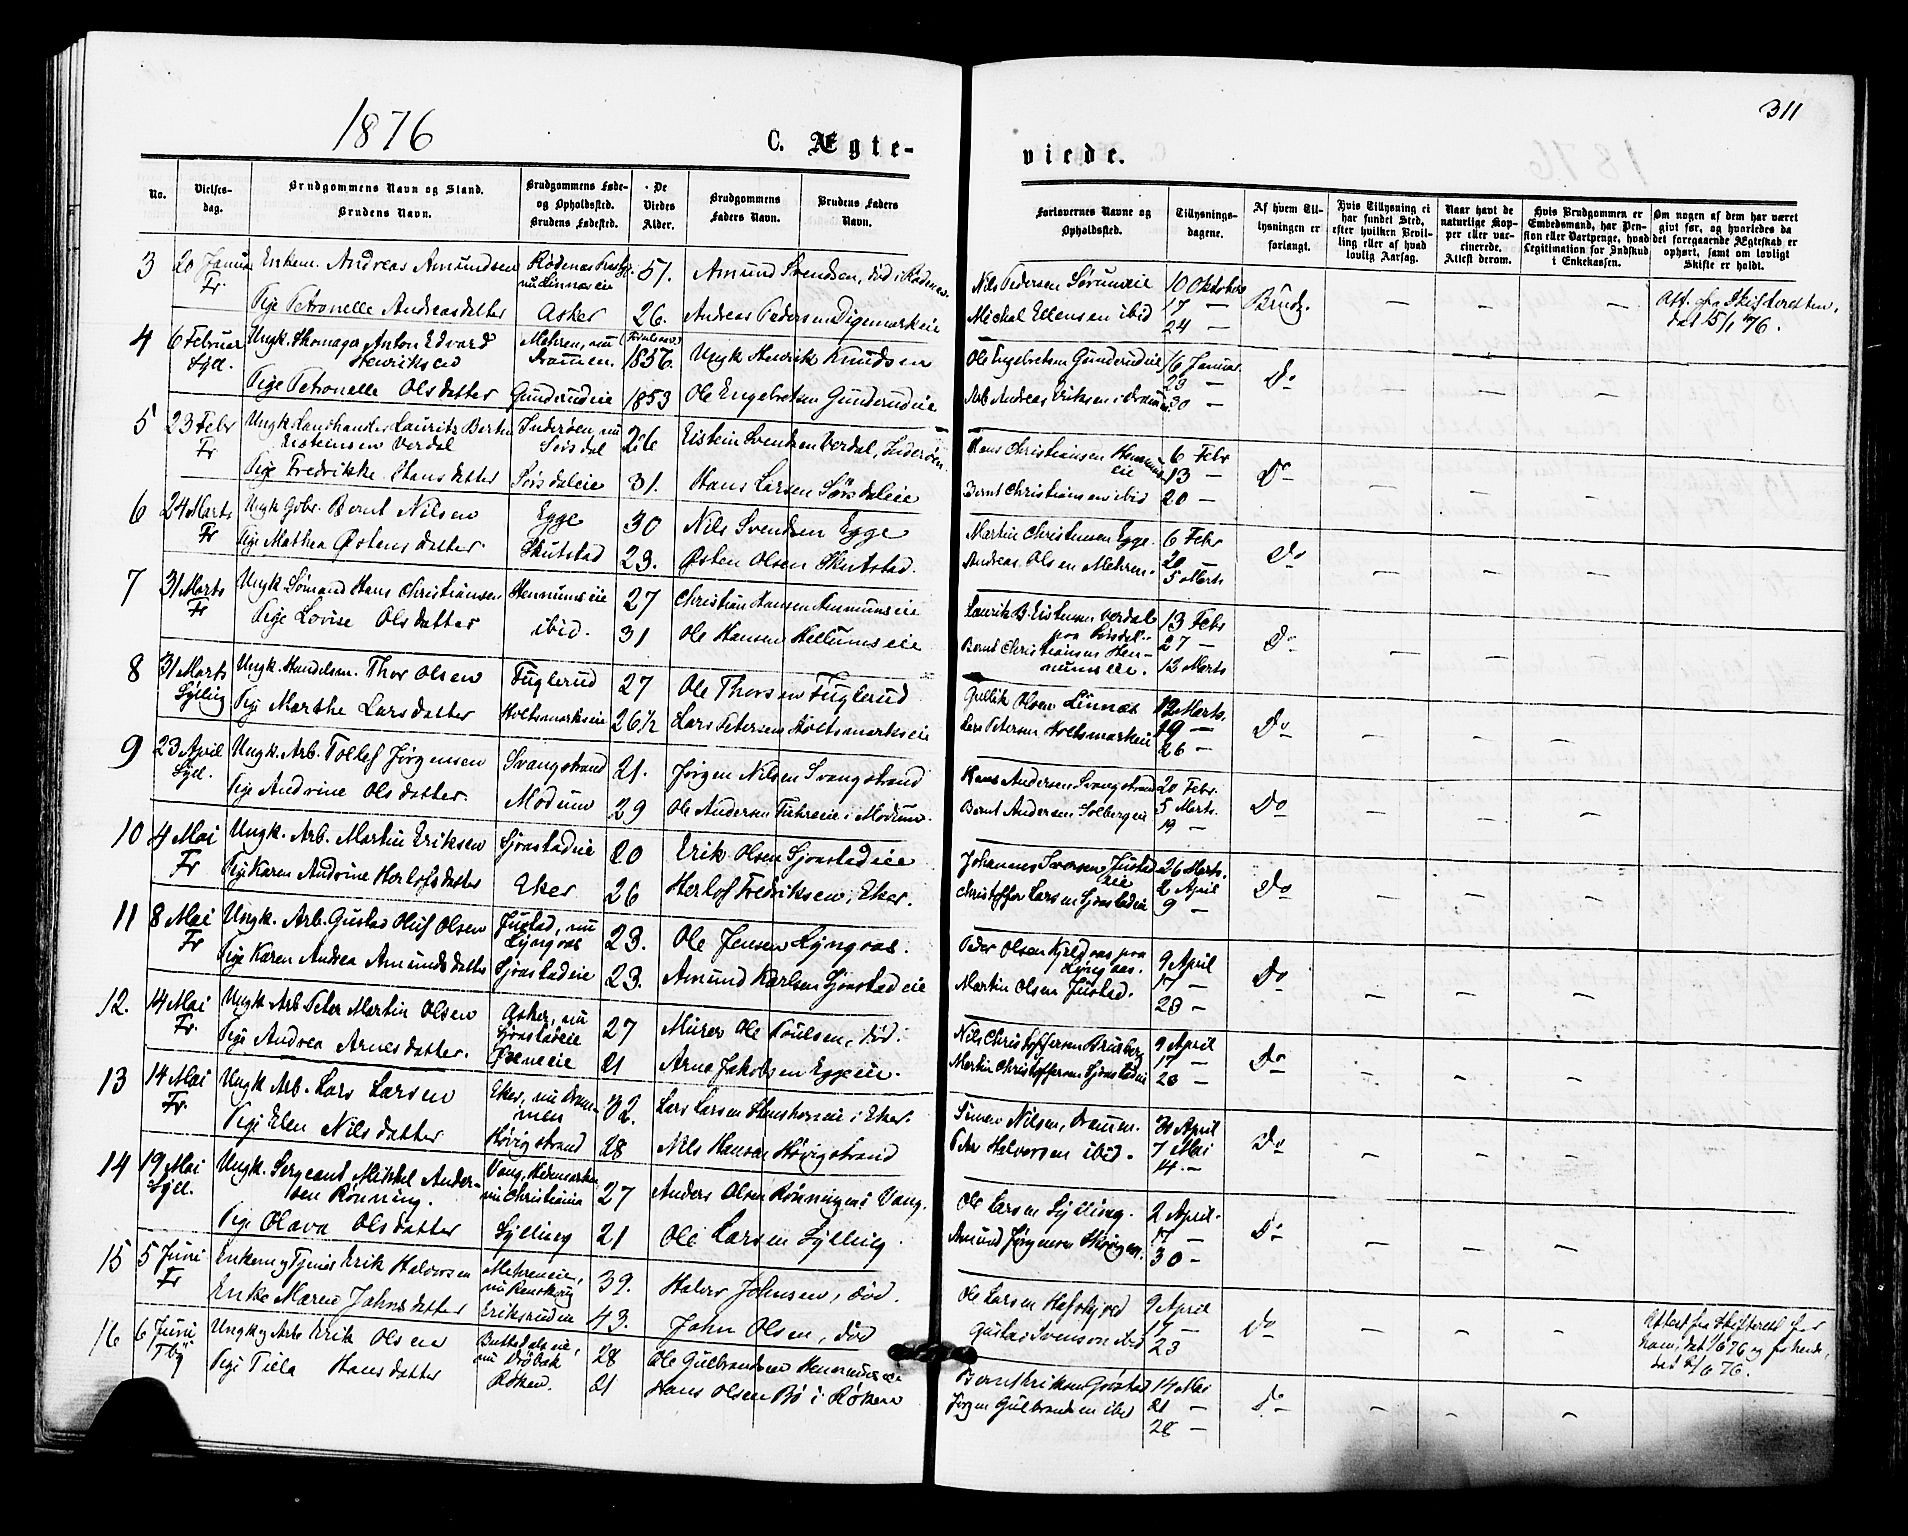 1876
C. Ægte-
viede.
311
No.
Vielses-
dag.
Brudgommens Navn og Stand.
Brudens Navn.
Brudgommens Føde-
og Opholdssted.
Brudens Fødested.
De
Viedes
Alder.
Brudgommens
Faders Navn.
Brudens Faders
Navn.
Forlovernes Navne og
Opholdssted.
Tillysnings-
dagene.
Af hvem Til-
lysningen er
forlangt.
Hvis Tillysning ei
har fundet Sted,
efter hvilken Bevil-
ling eller af hvad
lovlig Aarsag.
Naar havt de
naturlige Kop-
per eller vac-
cinerede.
Attest derom.
Hvis Brudgommen er
Embedsmand, har Pen-
sion eller Vartpenge, hvad
Legitimation for Indskud
i Enkekassen.
Om nogen af dem har været
gift før, og hvorledes da
det foregaaende Ægteskab er
ophørt, samt om lovligt
Skifte er holdt.
3 20 Januar Enkem. Andreas Amundsen Rødenæs 51. Amund Svendsen, død i Rødenæs
Fr nu Linnæseie
Pige Petronelle Andreasdatter Asker 26. Andreas Pedersen Digemarkeie
Nils Pedersen 10 Oktober
Michal Ellensen ibid 17 — Brudg. — — —
24 —
4 6 Februar Ungk. Anton Edvard Mehren, nu 1856. Ungk Henrik Knudsen
Syll. Henriksen Drammen.
Pige Petronelle Olsdatter Gunderudeie 1853 Ole Engebretsen Gunderudeie
Ole Engebretsen Gunderudeie 16 Januar
23 — Do — — —
Arb. Andreas Eriksen i Drammen 30 —
5 23 Febr Ungk. Landhandler Laurits Berten Inderøen, nu 26 Eistein Svendsen Verdal, Inderøen
Fr Eisteinsen Verdal Sørsdal
Pige Fredrikke Hansdatter Sørsdaleie 31. Hans Larsen Sørsdaleie
Hans Christiansen Hennums- 6 Febr
eie 13 — Do — — —
Bernt Christiansen ibid 20 —
6 24 Marts Ungk Gbr. Bernt Nilsen Egge 30 Nils Svendsen Egge
Fr Pige Mathea Østensdatter. Skutstad 23. Østen Olsen Skutstad.
Martin Christensen Egge. 6 Febr
Andreas Olsen Mehren. 20 Do — — —
5 Marts
7 31 Marts Ungk Sømand Hans Christiansen Hennumseie 27 Christian Hansen Hennumseie
Fr Pige Lovise Olsdatter ibid. 31 Ole Hansen Hellumseie
Laurits B. Eistensen Verdal 13 Febr
paa Sørsdal. 27 — Do — — —
Bernt Christiansen Hen-
numseie. 12 Marts
8 31 Marts Ungk. Handelsm. Thor Olsen Fuglerud 27 Ole Thorsen Fuglerud
Sylling Pige Marthe Larsdatter Holtsmarkseie 26½ Lars Petersen Holtsmarkseie
Gullik Olsen Linnæs 12 Marts.
Lars Petersen Holtsmarkeie 19 — Do — — —
26 —
9 23 April Ungk. Arb. Tollef Jørgensen Svangstrand 21. Jørgen Nilsen Svangstrand
Syll. Pige Andrine Olsdatter. Modum 29 Ole Andersen i Modum.
Hans Andersen Svangstrand 20 Febr.
Bernt Andersen Solbergeie 5 Marts. Do — — —
19 —
10 4 Mai Ungk. Arb. Martin Eriksen Sjonstadeie 20 Erik Olsen Sjonstadeie
Fr Pige Karen Andrine Herlofsdatter Eker 26 Herlof Fredriksen, Eker.
Johannes Iversen Justad 26 Marts.
eie 2 April Do — — —
Christoffer Larsen Sjonstadeie 9 —
11 8 Mai Ungk. Arb. Gustav Oluf Olsen Justad, nu 23. Ole Jensen Lyngaas.
Fr Lyngaas
Pige Karen Andrea Amundsdatter Sjonstadeie 23. Amund Karlsen Sjonstadeie
Peder Olsen Kjeldaas paa 9 April
Lyngaas. 17 — Do — — —
Martin Olsen Justad. 23 —
12. 14 Mai Ungk Arb. Peter Martin Olsen Asker, nu 27 Murer Ole Paulsen, død.
Fr. Sjonstadeie
Pige Andrea Arnesdatter. 21 Arne Jakobsen Eggeeie.
Nils Christoffersen 9 April
Martin Christoffersen Sjonstadeie 17 — Do — — —
23 —
13 14 Mai Ungk Arb. Lars Larsen Eker, nu Dram- 32. Lars Larsen i Eker.
Fr. men
Pige Elen Nilsdatter Høvigstrand 28 Nils Hansen Høvigstrand
Simen Nilsen, Drammen. 30 April
Peter Halvorsen ibid. 7 Mai Do — — —
14. —
14 19 Mai Ungk. Sergeant Mikkel Ander- Vang, Hedemarken 27 Anders Olsen Rønningen i Vang.
Syll. sen Rønning. nu Christiania
Pige Olava Olsdatter Sylling 21 Ole Larsen Sylling
Ole Larsen Sylling. 2 April.
Amund Jørgensen 17 — Do — — —
30 —
15 5 Juni Enkem Erik Halvorsen Mehreneie, 39. Halvor Johnsen, død.
Fr nu Renskoug
Enke Maren Johnsdatter Eriksruden 43. John Olsen, død
Ole Larsen 9 April
Gustav Svenson ibid 17 — Do — — —
23
16 6 Juni Ungk Arb. Erik Olsen 28 Ole Gulbrandsen Hennumseie
nu Drøbak
Pige Hansdatter Røken. 21 Hans Olsen Bø i Røken
Bernt Eriksen 14 Mai
Jørgen Gulbrandsen ibid 21 — Do — — —
28 —
Att. fra Skifteretten,
dat 15/1 76.
Attest fra Skifteret for
ham, dat 1/6 76 og for hende,
dat 2/6 76.